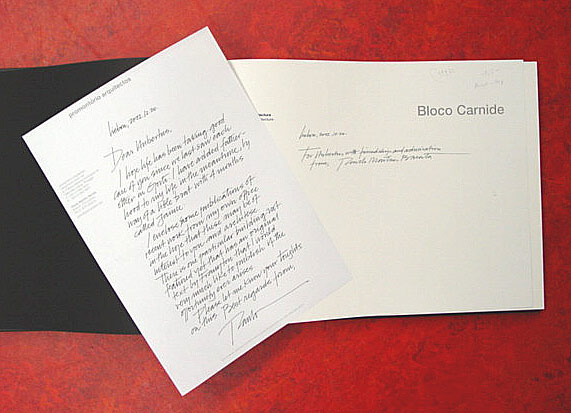 promontório arquitectos
Lisboa, 2002.12.20.
Dear Hubertus,
I hope life has been taking good
care of you since we last saw each
other in I have added father-
hood to my life in the meantime, by
way of a little brat with 2 months
called Jaime.
I enclose some publications of
recent work from my own office
in the hope that these may be of
interest to you and architese.
There is one particular building not
featured yet that has an original
text by Frampton that I would
very much like to publish if the
opportunity ever arises.
Please let me know your thoughts
on this. Best regards from,
Paulo
Bloco Carnide
Lisboa, 2002.12.20.
For Hubertus, with friendship and admiration
from, Paulo Martins Barata